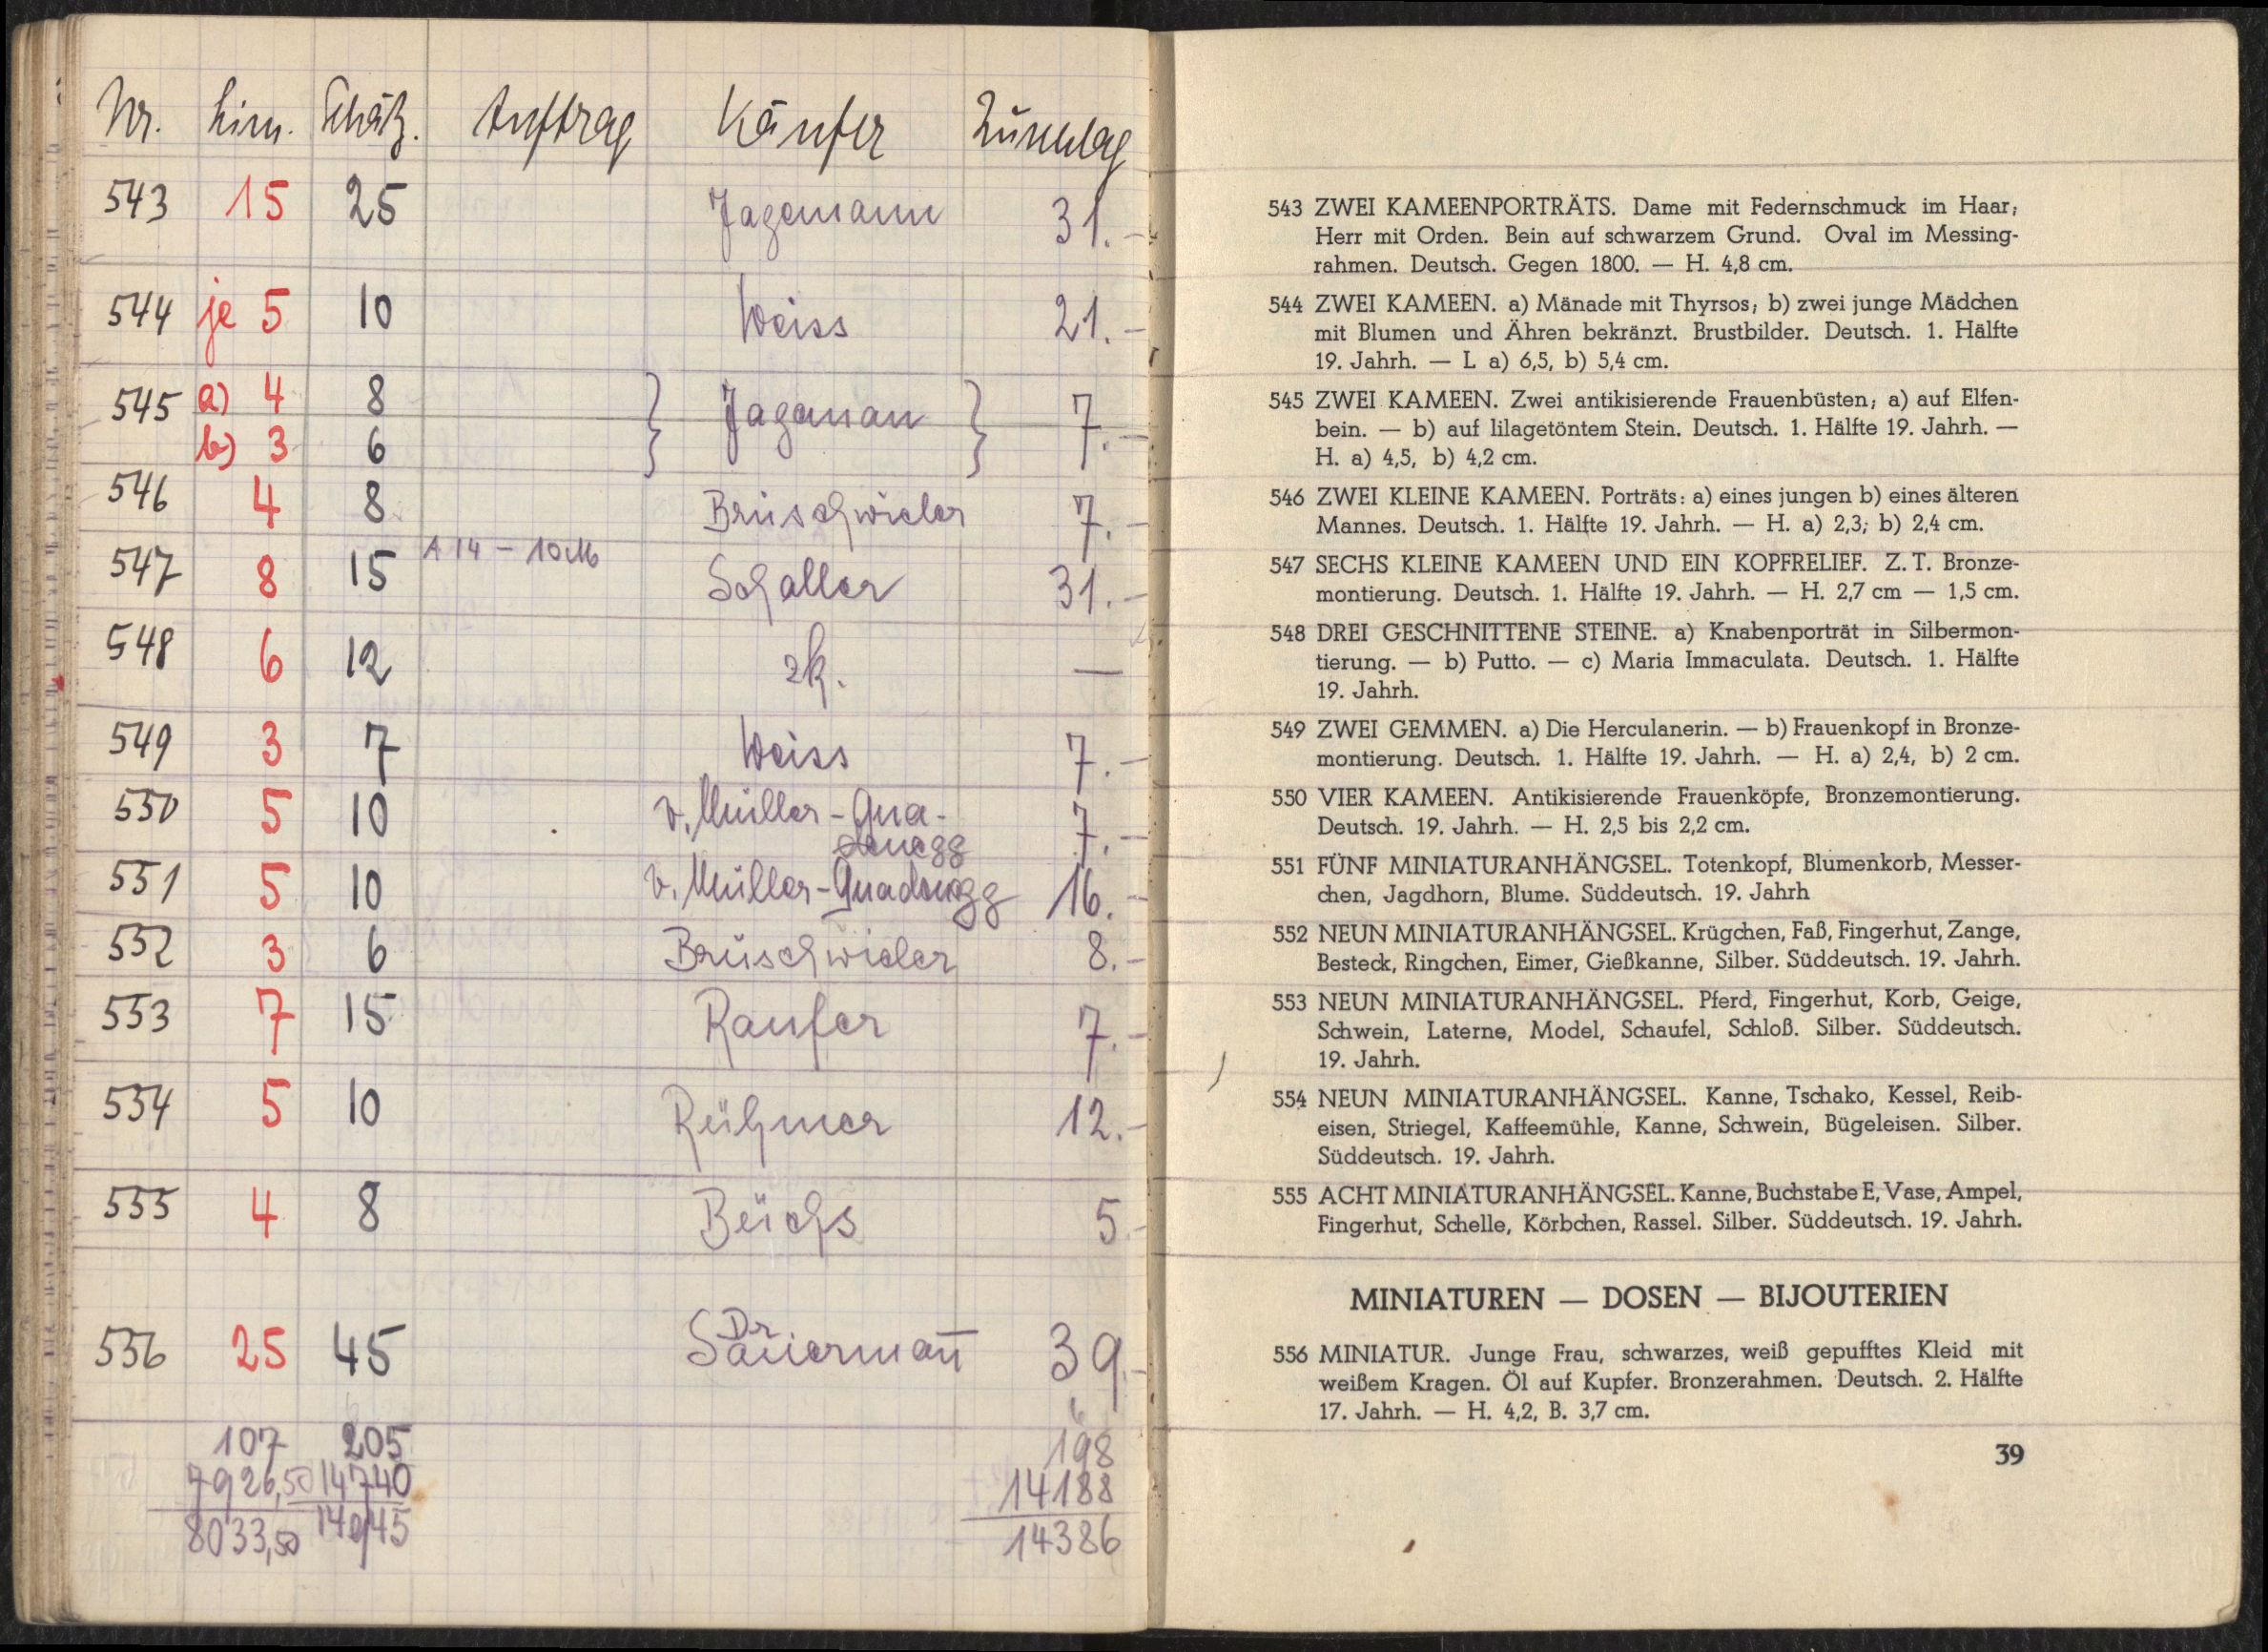 Nr. Lim. Schätz. Auftrag Käufer Zuschlag
543 15 25 Jagemann 31.-
544 je 5 10 Weiss 21.-
545 a) 4 8 Jageman 7.-
b) 3 6
546 4 8 Brüschwieler 7.-
547 8 15 A 14 - 10 M Schaller 31.-
548 6 12 zk. —
549 3 7 Weiss 7.-
550 5 10 v. Müller-Qua-
denegg 7.-
551 5 10 v. Müller-Quadenegg 16.-
552 3 6 Brüschwieler 8.-
553 7 15 Raufer 7.-
554 5 10 Rühmer 12.-
555 4 8 Büchs 5.-
Dr
556 25 45 Sauerman̄ 39.-
107 205 198
7926,50 14740 14188
8033,50 14945 14386
543 ZWEI KAMEENPORTRÄTS. Dame mit Federnschmuck im Haar;
Herr mit Orden. Bein auf schwarzem Grund. Oval im Messing-
rahmen. Deutsch. Gegen 1800. — H. 4,8 cm.
544 ZWEI KAMEEN. a) Mänade mit Thyrsos; b) zwei junge Mädchen
mit Blumen und Ähren bekränzt. Brustbilder. Deutsch. 1. Hälfte
19. Jahrh. — L a) 6,5, b) 5,4 cm.
545 ZWEI KAMEEN. Zwei antikisierende Frauenbüsten; a) auf Elfen-
bein. — b) auf lilagetöntem Stein. Deutsch. 1. Hälfte 19. Jahrh. —
H. a) 4,5, b) 4,2 cm.
546 ZWEI KLEINE KAMEEN. Porträts: a) eines jungen b) eines älteren
Mannes. Deutsch. 1. Hälfte 19. Jahrh. — H. a) 2,3; b) 2,4 cm.
547 SECHS KLEINE KAMEEN UND EIN KOPFRELIEF. Z. T. Bronze-
montierung. Deutsch. 1. Hälfte 19. Jahrh. — H. 2,7 cm — 1,5 cm.
548 DREI GESCHNITTENE STEINE. a) Knabenporträt in Silbermon-
tierung. — b) Putto. — c) Maria Immaculata. Deutsch. 1. Hälfte
19. Jahrh.
549 ZWEI GEMMEN. a) Die Herculanerin. — b) Frauenkopf in Bronze-
montierung. Deutsch. 1. Hälfte 19. Jahrh. — H. a) 2,4, b) 2 cm.
550 VIER KAMEEN. Antikisierende Frauenköpfe, Bronzemontierung.
Deutsch. 19. Jahrh. — H. 2,5 bis 2,2 cm.
551 FÜNF MINIATURANHÄNGSEL. Totenkopf, Blumenkorb, Messer-
chen, Jagdhorn, Blume. Süddeutsch. 19. Jahrh
552 NEUN MINIATURANHÄNGSEL. Krügchen, Faß, Fingerhut, Zange,
Besteck, Ringchen, Eimer, Gießkanne, Silber. Süddeutsch. 19. Jahrh.
553 NEUN MINIATURANHÄNGSEL. Pferd, Fingerhut, Korb, Geige,
Schwein, Laterne, Model, Schaufel, Schloß. Silber. Süddeutsch.
19. Jahrh.
554 NEUN MINIATURANHÄNGSEL. Kanne, Tschako, Kessel, Reib-
eisen, Striegel, Kaffeemühle, Kanne, Schwein, Bügeleisen. Silber.
Süddeutsch. 19. Jahrh.
555 ACHT MINIATURANHÄNGSEL. Kanne, Buchstabe E, Vase, Ampel,
Fingerhut, Schelle, Körbchen, Rassel. Silber. Süddeutsch. 19. Jahrh.
MINIATUREN — DOSEN — BIJOUTERIEN
556 MINIATUR. Junge Frau, schwarzes, weiß gepufftes Kleid mit
weißem Kragen. Öl auf Kupfer. Bronzerahmen. Deutsch. 2. Hälfte
17. Jahrh. — H. 4,2, B. 3,7 cm.
39